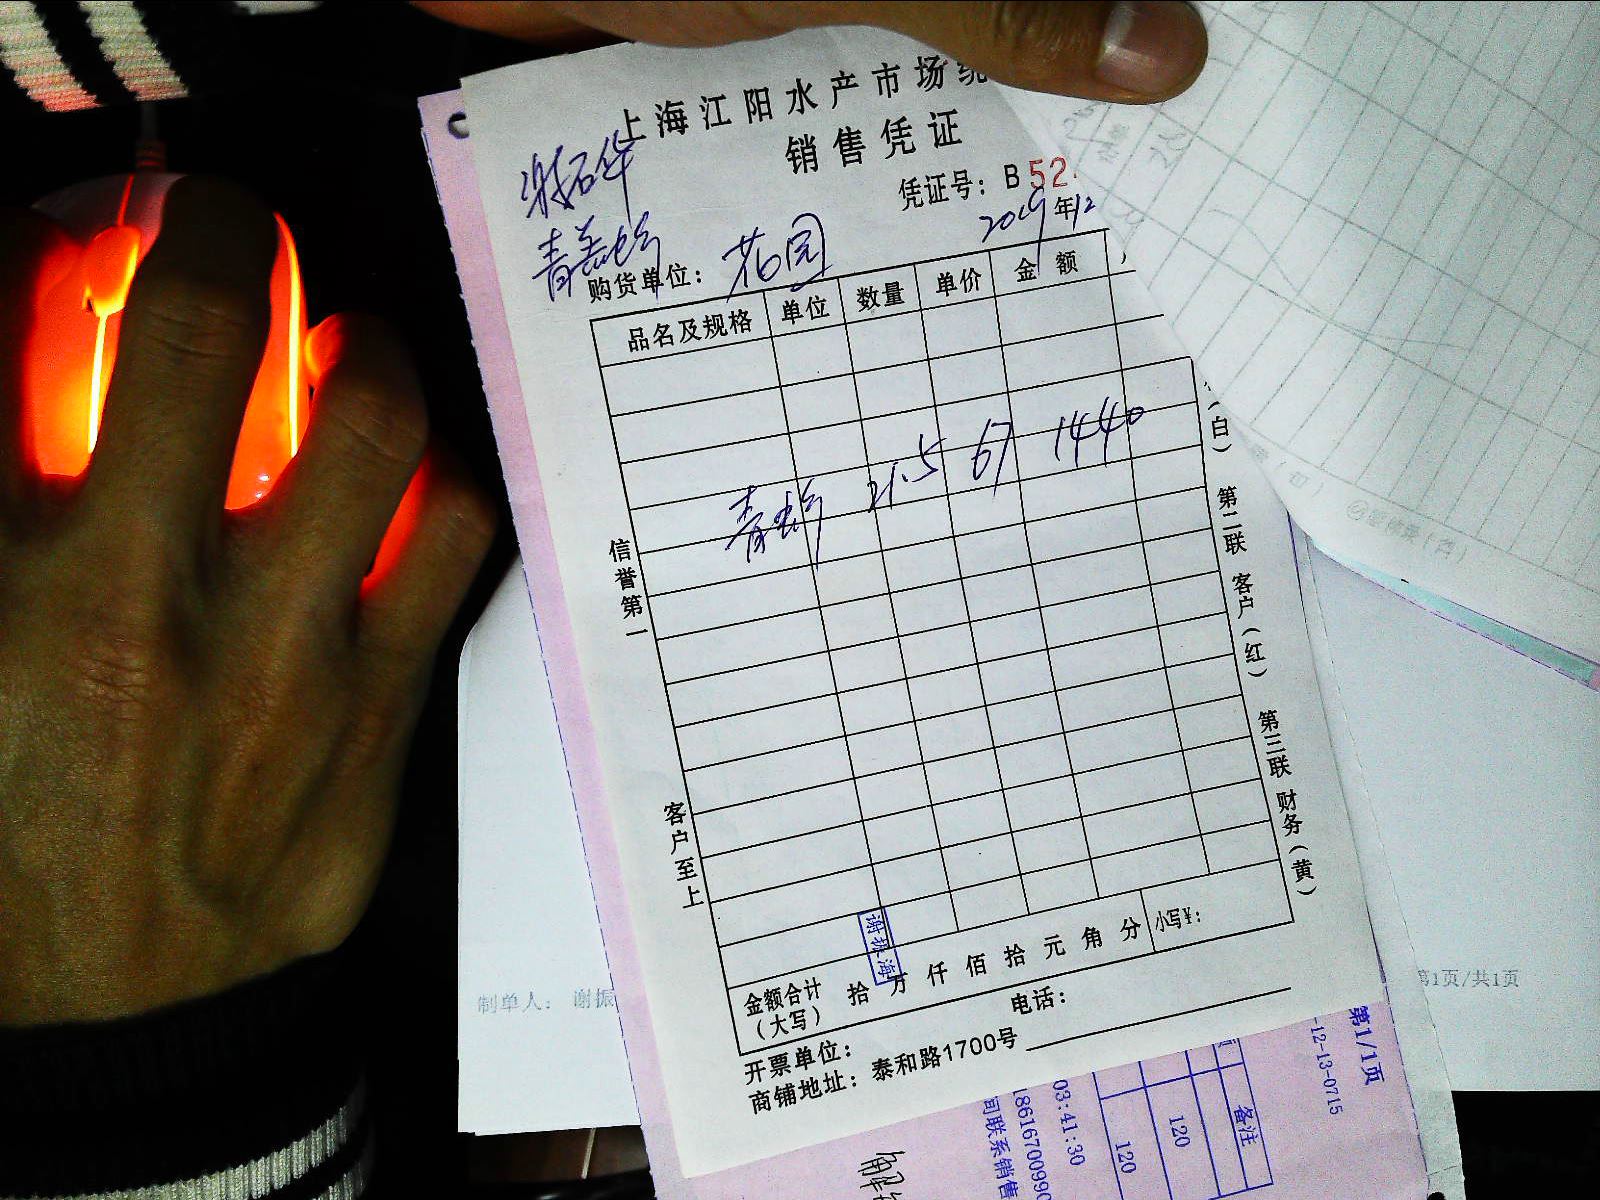 上海江阳水产市场统
销售凭证
凭证号：B52
2019年12
谢石华
青盖蛤
购货单位：花园
品名及规格 单位 数量 单价 金额
青蛤 21.5 67 1440
信誉第一
客户至上
（白）
第二联 客户（红）
第三联 财务（黄）
谢振海
金额合计（大写） 拾 万 仟 佰 拾 元 角 分 小写¥：
开票单位： 电话：
商铺地址：泰和路1700号
制单人： 谢振
第1页/共1页
第1/1页
-12-13-0715
备注
120
120
03:41:30
18616700990
间联系销售